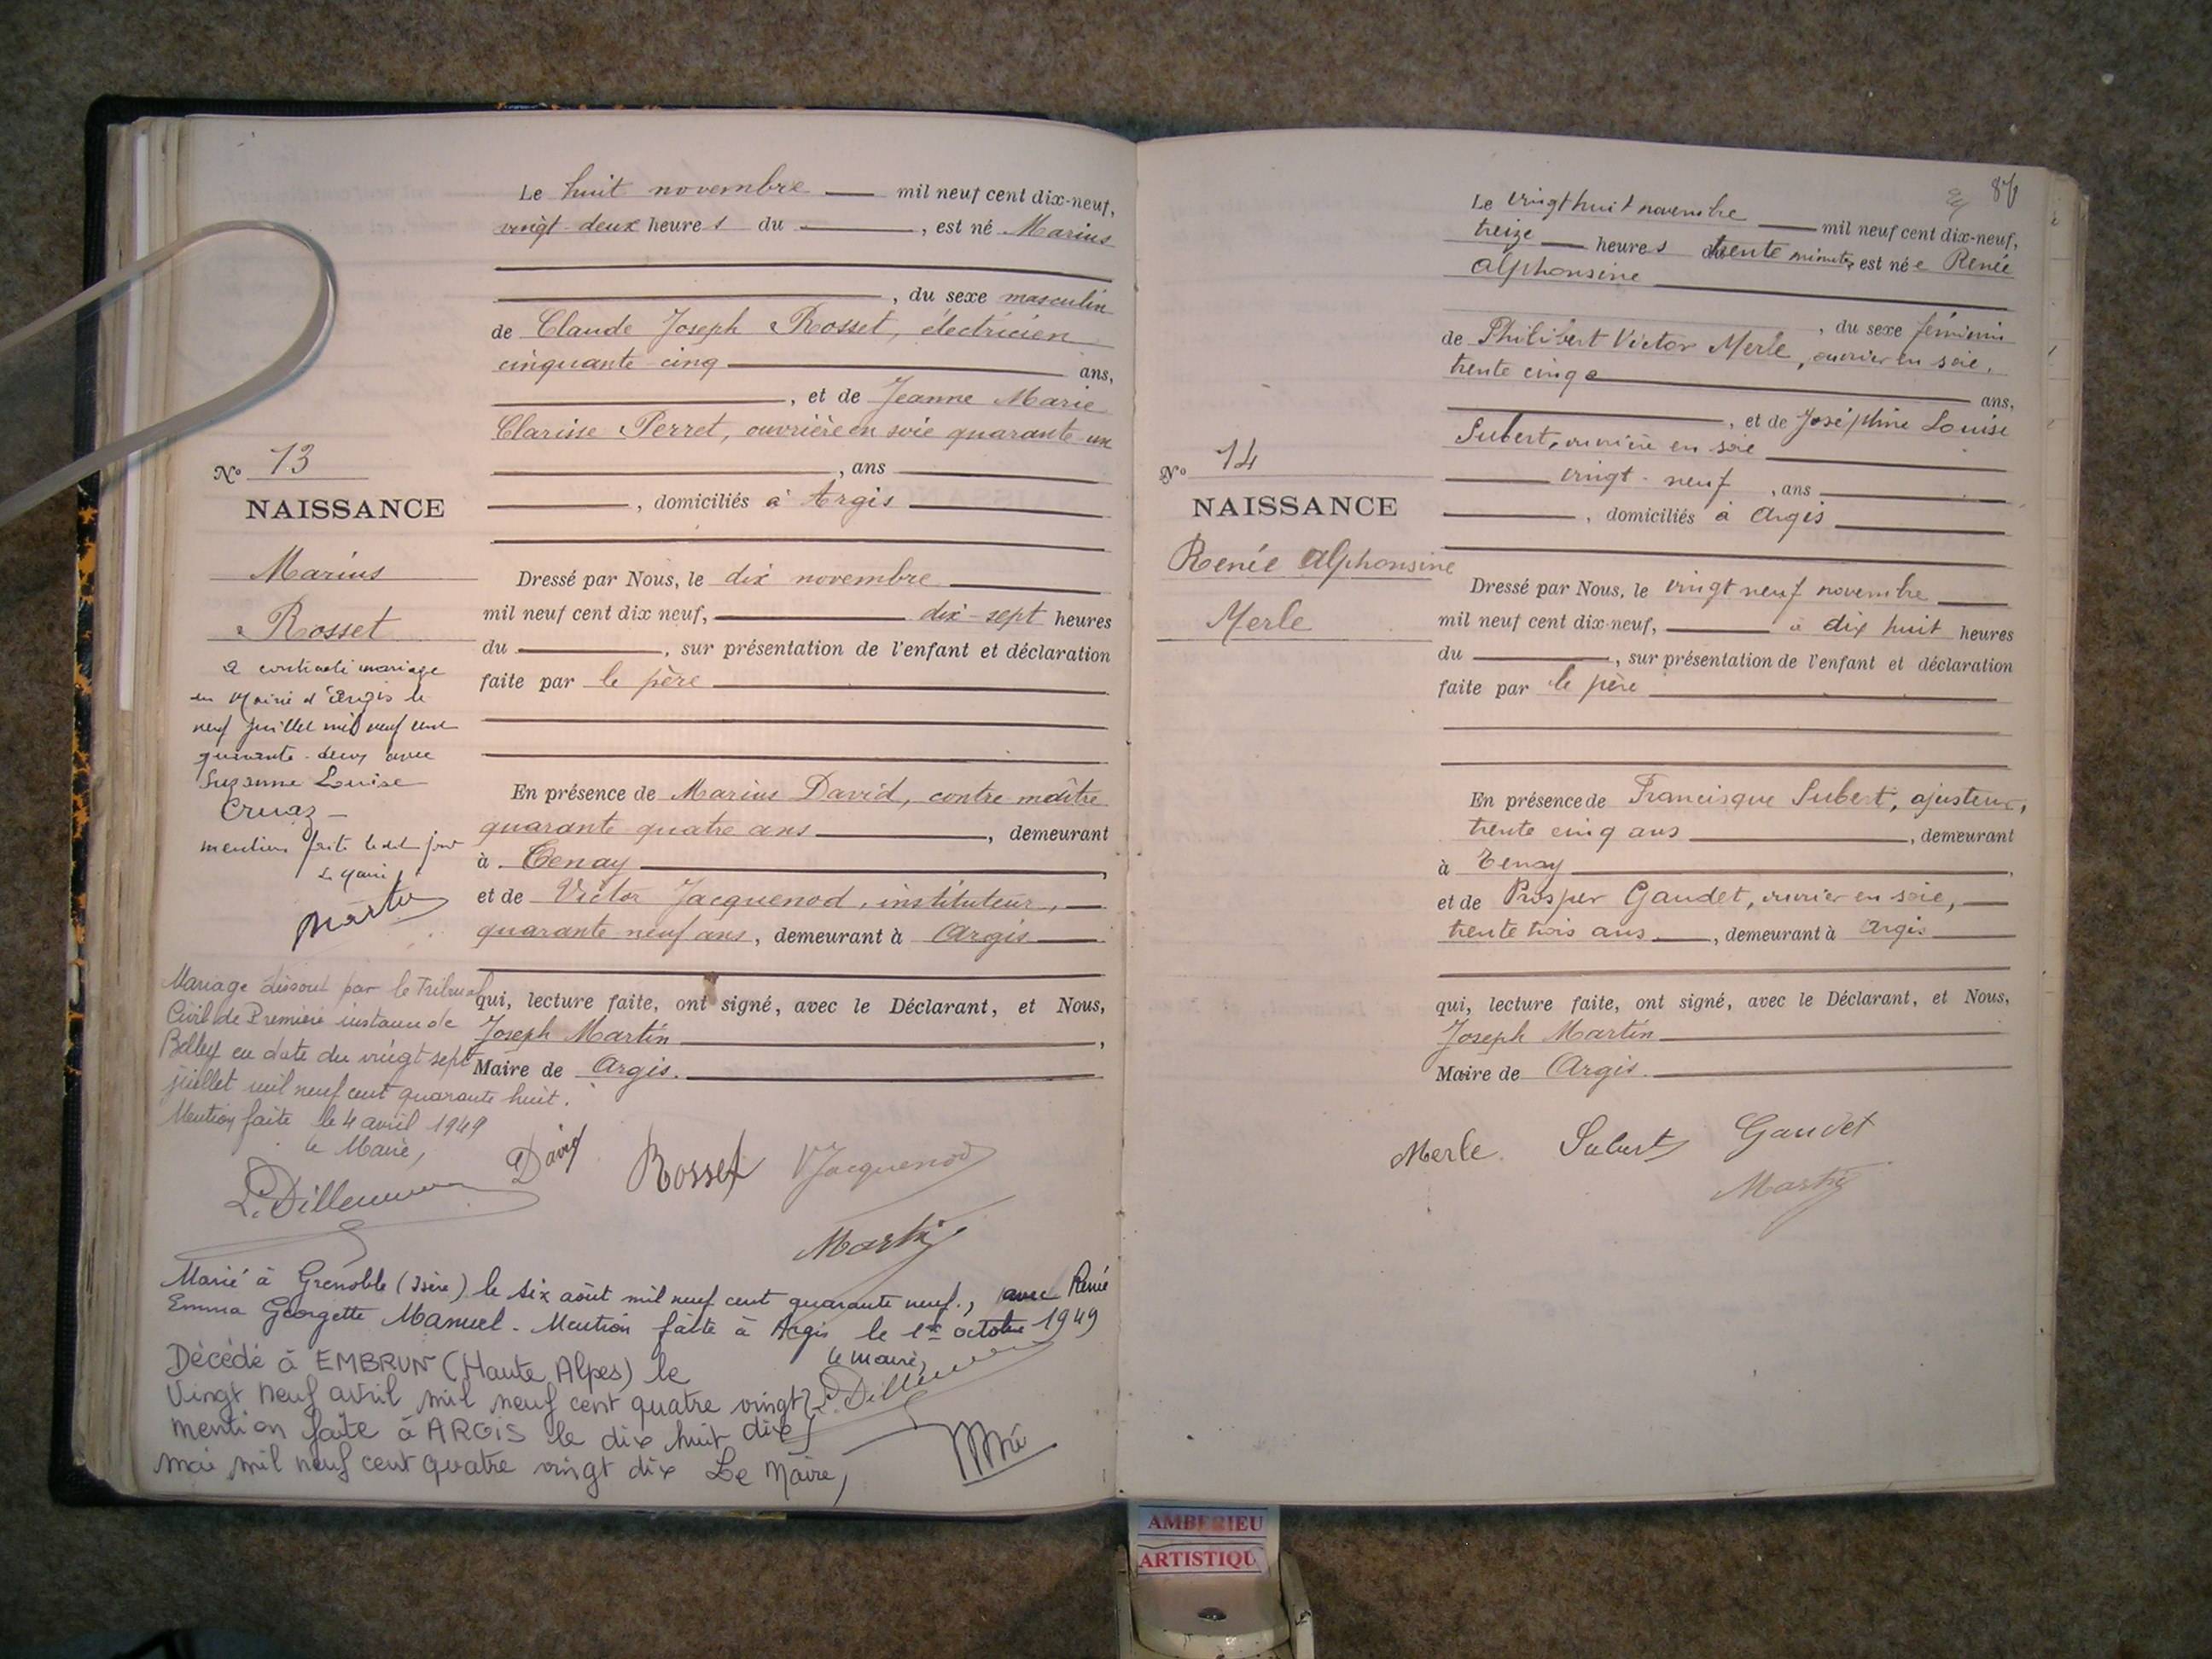 Le huit novembre mil neuf cent dix-neuf,
vingt-deux heures du , est né Marius
, du sexe masculin
de Claude Joseph Rosset, électricien
cinquante cinq ans,
, et de Jeanne Marie
Clarisse Perret, ouvrière en soie quarante un
, ans
, domiciliés à Argis
No 13
NAISSANCE
Marius
Rosset
Dressé par Nous, le dix novembre
mil neuf cent dix neuf, dix-sept heures
du , sur présentation de l'enfant et déclaration
faite par le père
En présence de Marius David, contre maître
quarante quatre ans , demeurant
à Tenay ,
et de Victor Jacquenod, instituteur,
quarante neuf ans, demeurant à Argis
qui, lecture faite, ont signé, avec le Déclarant, et Nous,
Joseph Martin ,
Maire de Argis.
a contracté mariage
en Mairie d'Argis le
neuf juillet mil neuf cent
quarante-deux avec
Suzanne Louise
Cruaz -
mention faite le dit jour
Le Maire
Martin
Mariage dissout par le Tribunal
Civil de Première instance de
Belley en date du vingt sept
juillet mil neuf cent quarante huit.
Mention faite le 4 avril 1949
le Maire,
David Rosset VJacquenod
Martin
Marié à Grenoble (Isère) le six août mil neuf cent quarante neuf., avec Renée
Emma Georgette Manuel. Mention faite à Argis le 1er octobre 1949
le maire,
Décédé à EMBRUN (Haute Alpes) le
Vingt neuf avril mil neuf cent quatre vingt
dix
mention faite à ARGIS le dix huit
mai mil neuf cent quatre vingt dix Le Maire,
Le vingt huit novembre mil neuf cent dix-neuf,
treize heures trente minutes, est née Renée
Alphonsine
, du sexe féminin
de Philibert Victor Merle, ouvrier en soie,
trente cinq ans,
, et de Joséphine Louise
Subert, ouvrière en soie
vingt-neuf , ans
, domiciliés à Argis
No 14
NAISSANCE
Renée Alphonsine
Merle
Dressé par Nous, le vingt neuf novembre
mil neuf cent dix-neuf, à dix huit heures
du , sur présentation de l'enfant et déclaration
faite par le père
En présence de Francisque Subert, ajusteur,
trente cinq ans , demeurant
à Tenay ,
et de Prosper Gaudet, ouvrier en soie,
trente trois ans , demeurant à Argis
qui, lecture faite, ont signé, avec le Déclarant, et Nous,
Joseph Martin
Maire de Argis.
Merle Subert Gaudet
Martin
AMBERIEU
ARTISTIQU